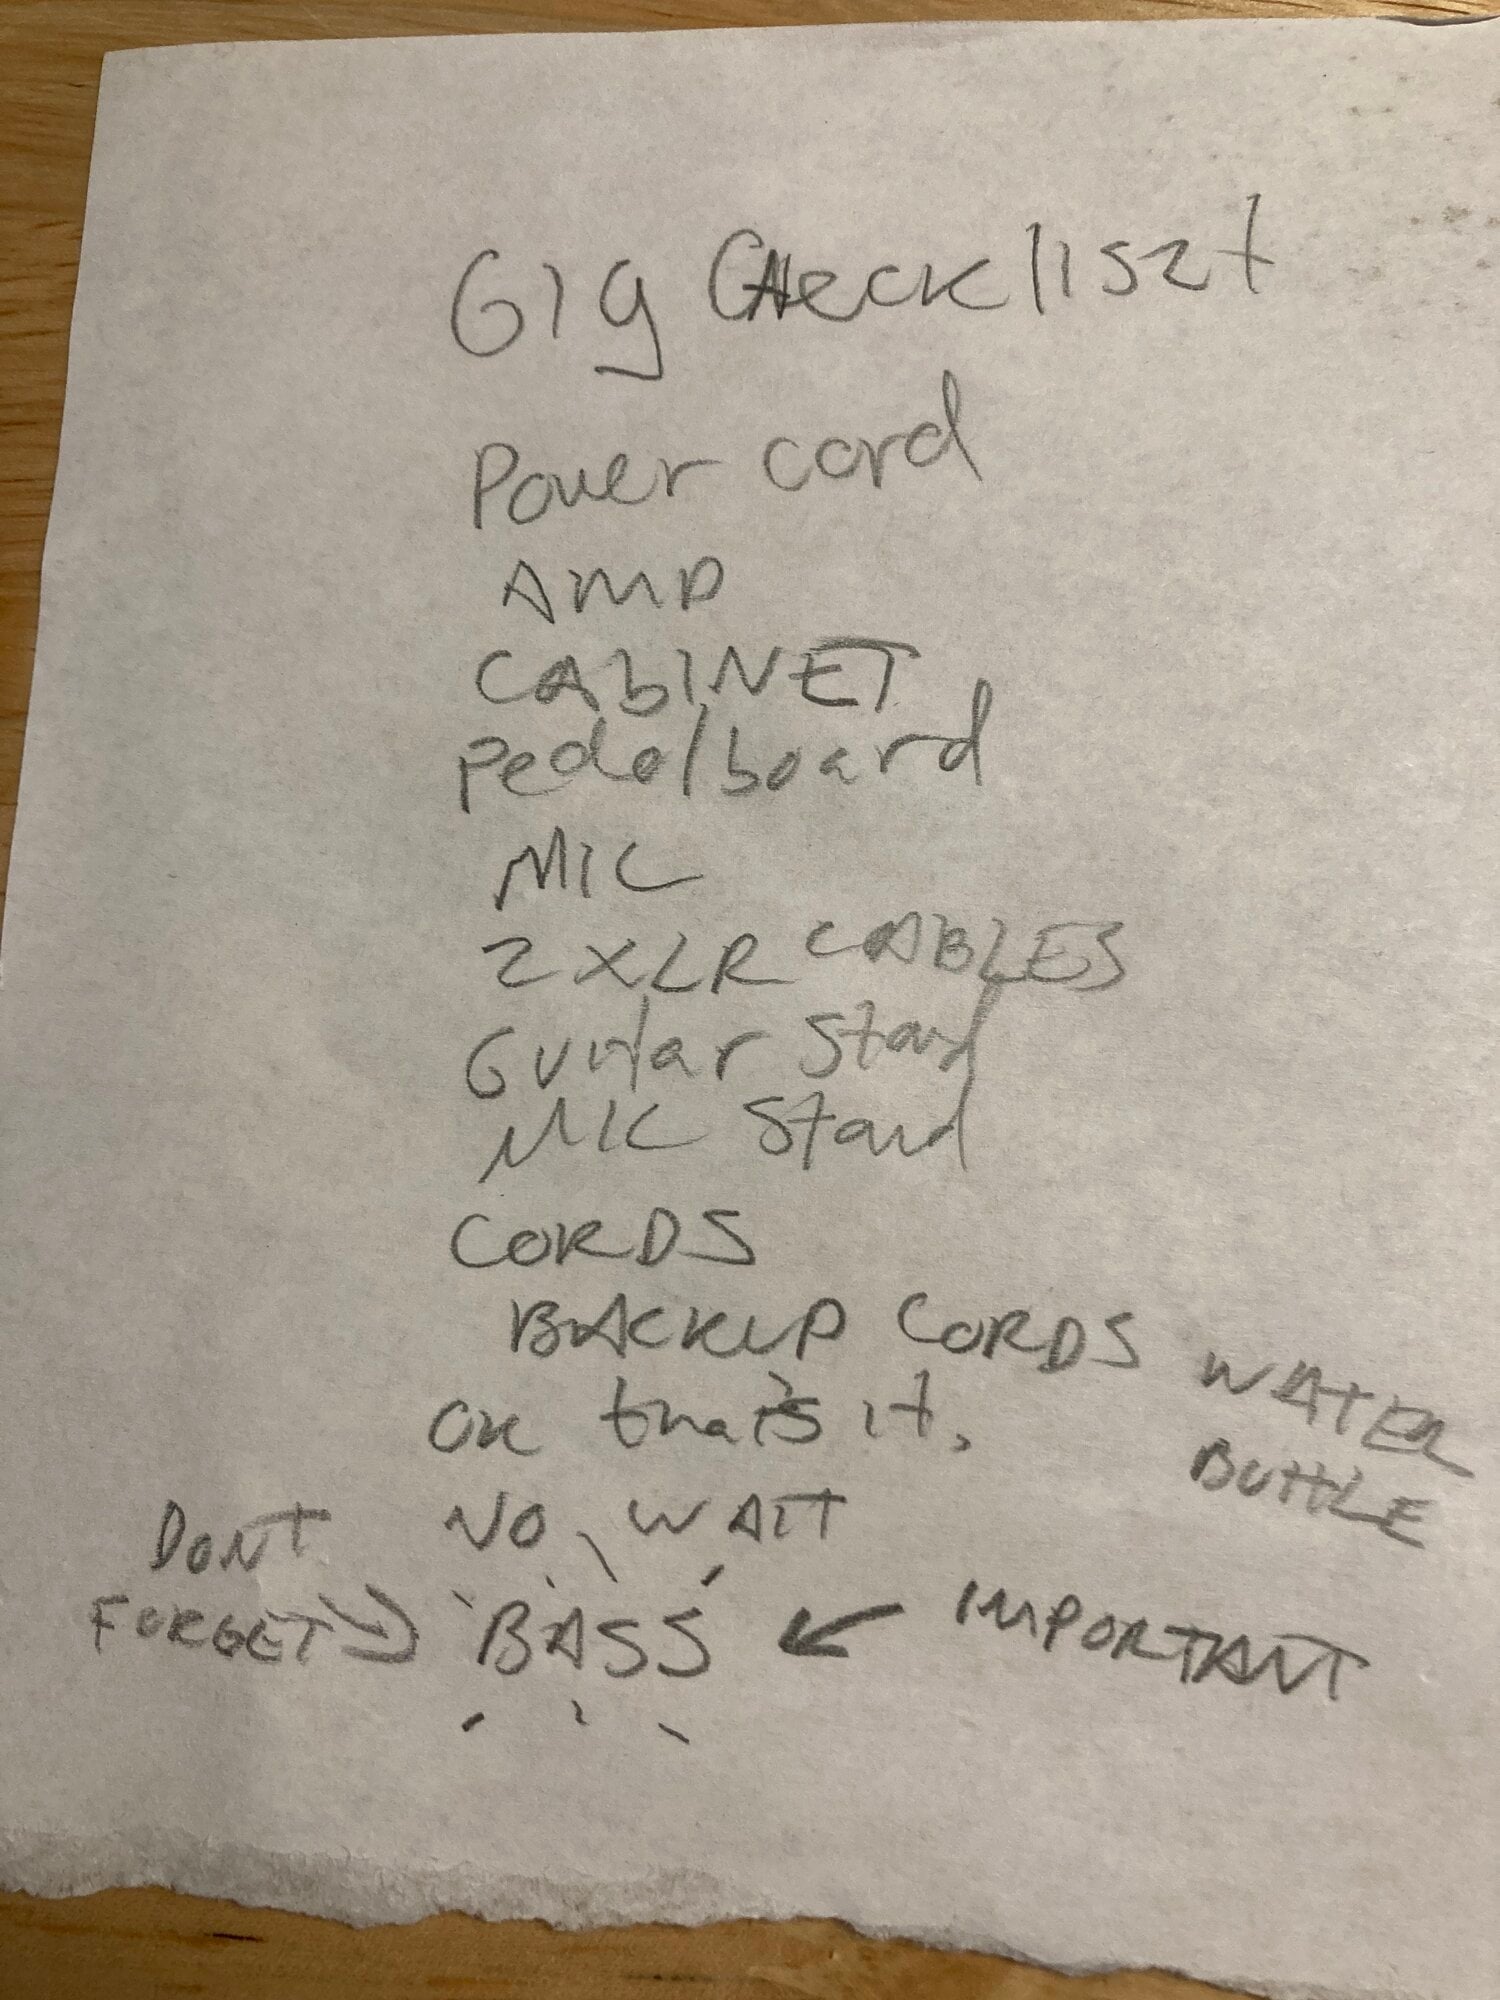 Gig Checkliszt
Power cord
AMP
CABINET
Pedalboard
MIC
2 XLR CABLES
Guitar Stand
MIC Stand
CORDS
BACKUP CORDS
WATER
BOTTLE
OK that's it.
NO, WAIT
DONT
FORGET
BASS
IMPORTANT